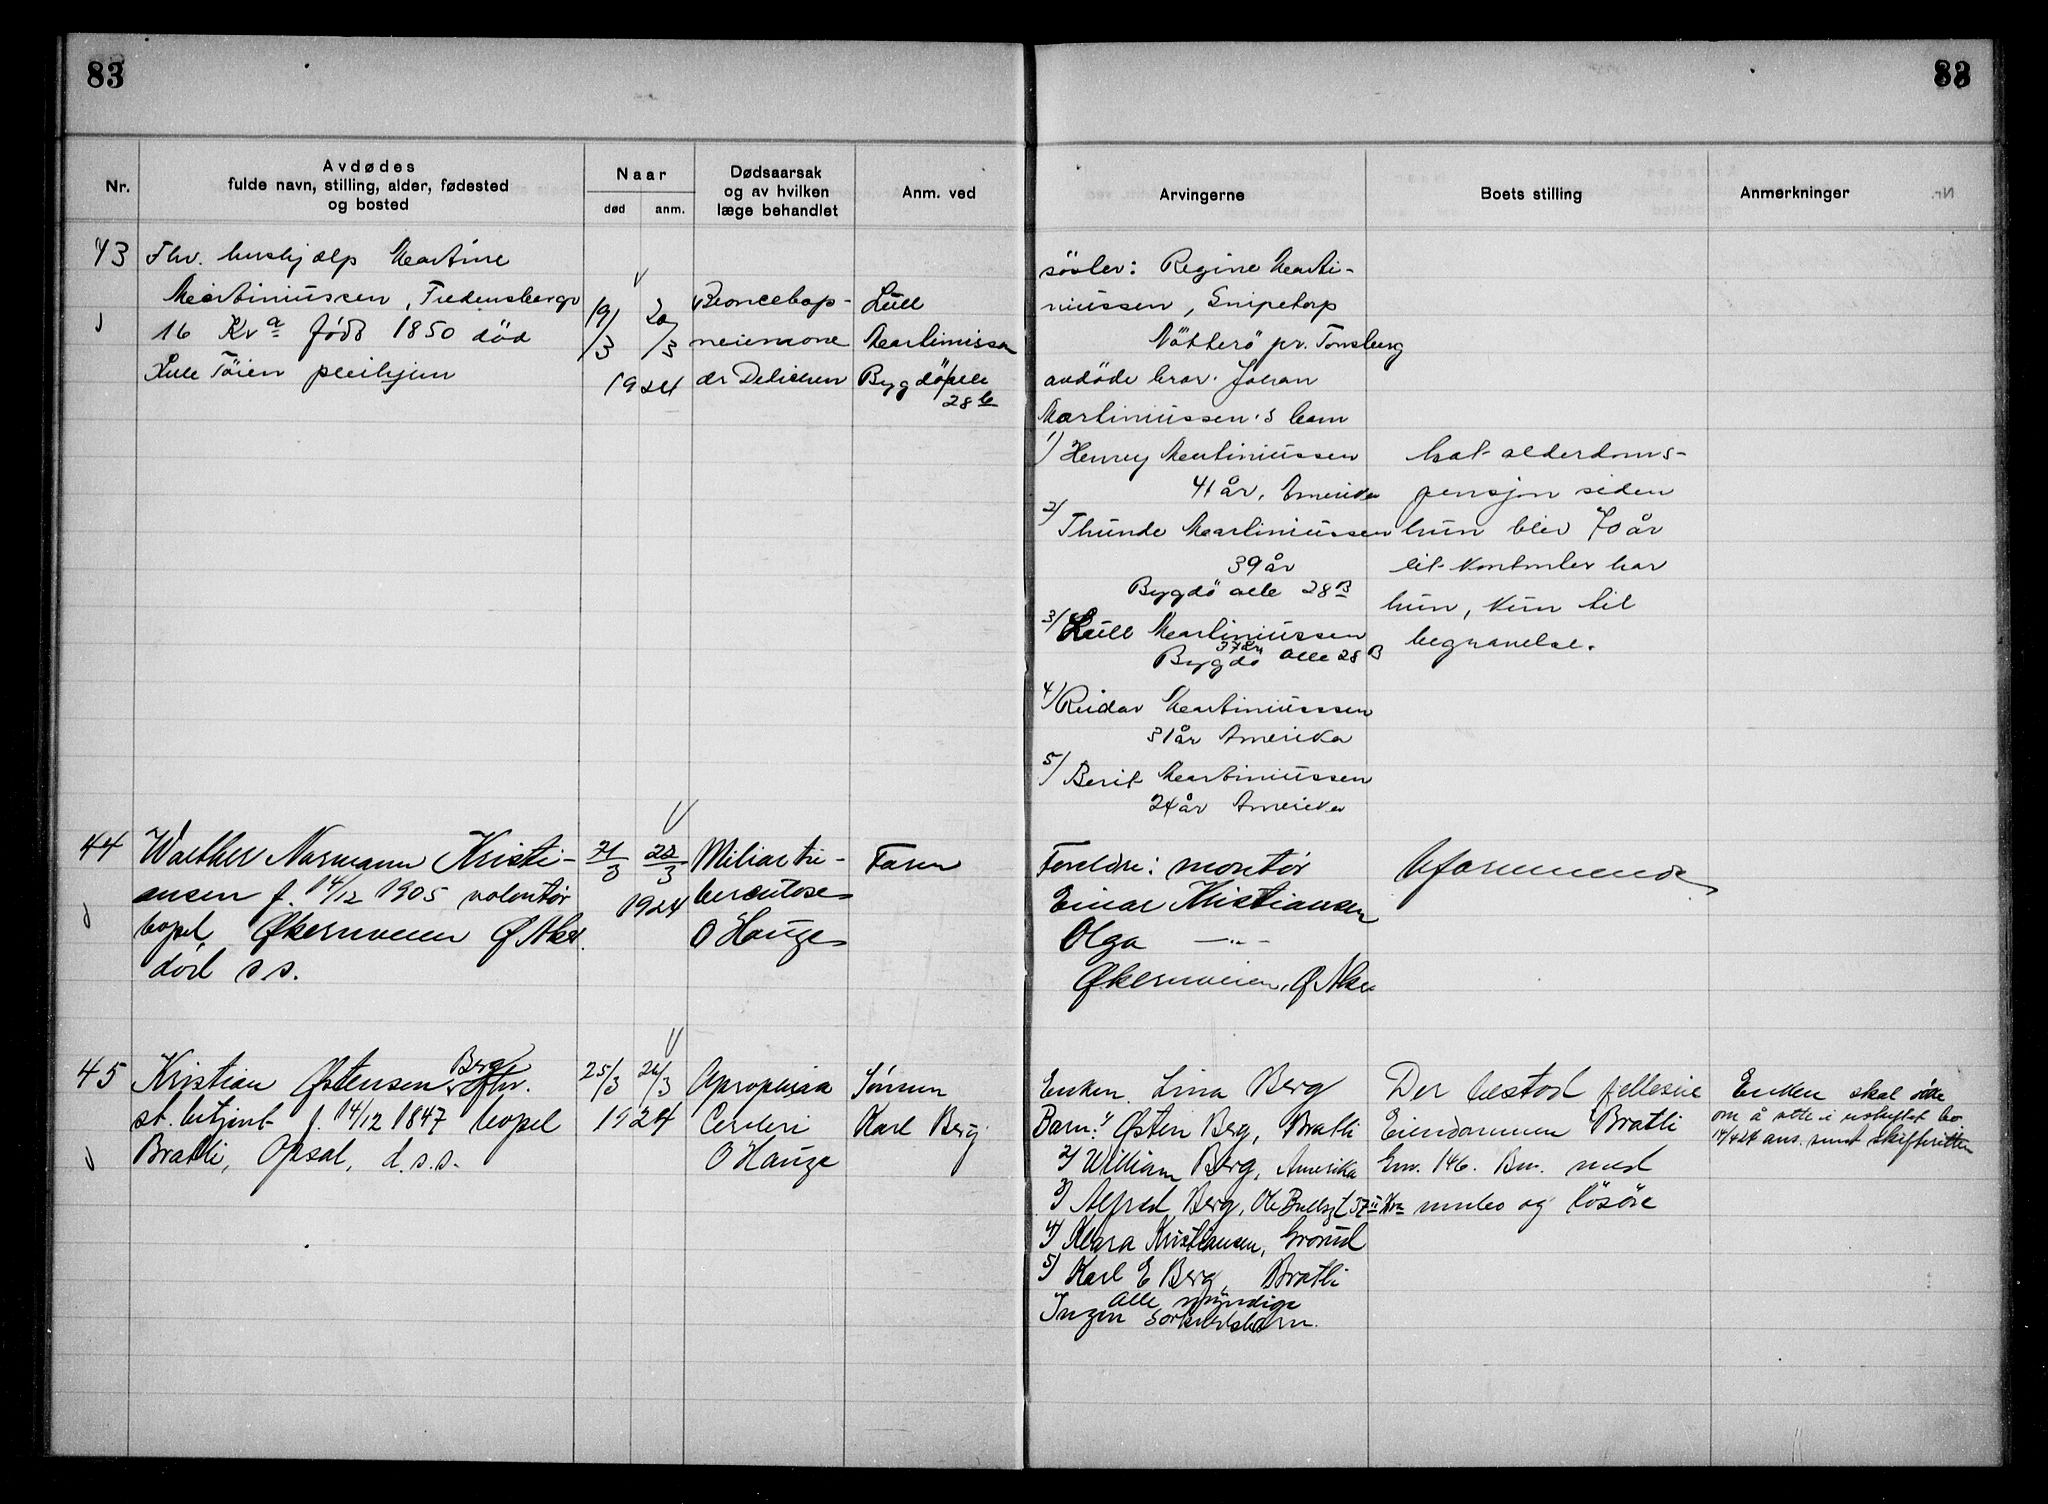 83
83
Nr.
Avdødes
fulde navn, stilling, alder, fødested
og bosted
Naar
død
anm.
Dødsaarsak
og av hvilken
læge behandlet
Anm. ved
Arvingerne
Boets stilling
Anmerkninger
43
Fhv. hushjælp Martine
Martiniussen, Fredensborgv
16 Kr.a født 1850 død
Tøien pleihjem
19/3 20/3
1924
Broncehop-
neiemone
dr Detichen
Lull
Martiniussen
Bygdö alle
28 b
søster: Regine Marti-
niussen, Snipetorp
Nötterö pr. Tønsberg
avdöde bror. Johan
Martiniussen's barn
1) Henry Martiniussen
41 år, Amerika
2) Thunde Martiniussen
39 år
Bygdö alle 28 B
3) Lull Martiniussen
37 år
Bygdö alle 28 B
4) Reidar Martiniussen
31 år Amerika
5) Berit Martiniussen
24 år Amerika
hat alderdoms-
pensjon siden
hun blev 70 år
lit kontanter har
hun, kun til
begravelse.
44
Walther Normann Kristi-
ansen f. 14/12 1905 volontør
bopel Økernveien Ø Aker.
død s.s.
21/3 22/3
1924
Miliar tu-
berculose
O Hauge
Faren
Foreldre: montør
Einar Kristiansen
Olga —"—
Økernveien, Ø Aker
Uformuende
45
Kristian Østensen Berg fhv.
st. betjent f. 14/12 1847 bopel
Bratli, Opsal, d.s.s.
25/3 26/3
1924
Apoplexia
Cerebri
O Hauge
Sønnen
Karl Berg.
Enken Lina Berg
Barn: 1) Østen Berg, Bratli
2) William Berg, Amerika
3) Alfred Berg, Ole Bullsgt 37 II Kra
4) Klara Kristiansen, Grorud
5) Karl E Berg, Bratli
alle myndige
Ingen særkuldsbarn.
Der bestod felleseie
Eiendommen Bratli
Gnr. 146. Bnr. med
innbo og løsøre
Enken skal søke
om å sitte i uskiftet bo
14/4 24 ans. sendt skifteretten